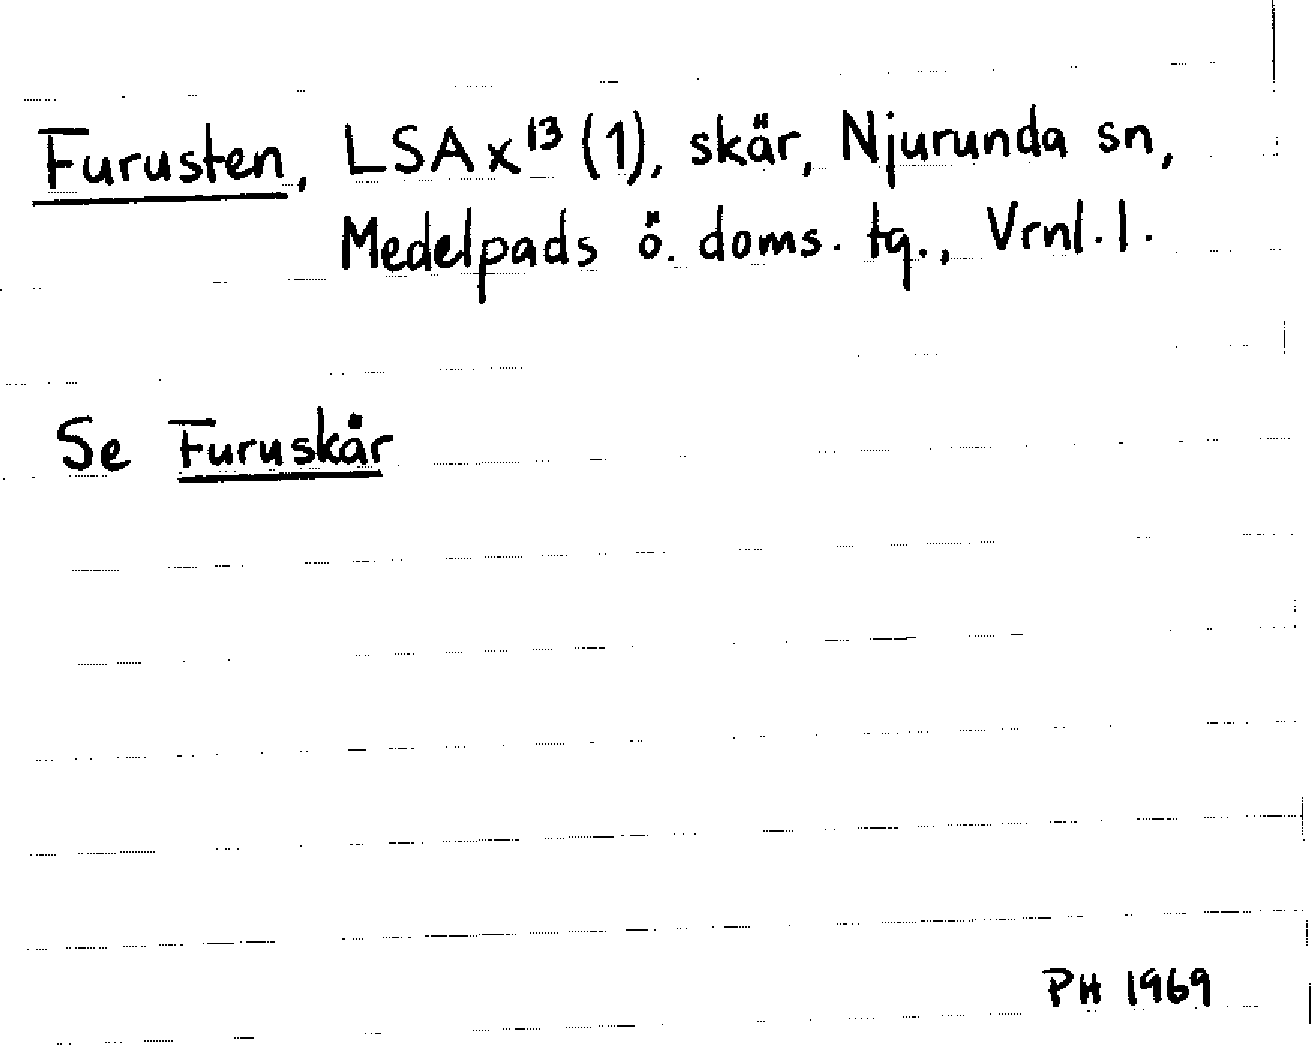 Furusten, LSA x¹³ (1), skär, Njurunda sn,
Medelpads ö. doms. tg., Vrnl. l.
Se Furuskär
PH 1969